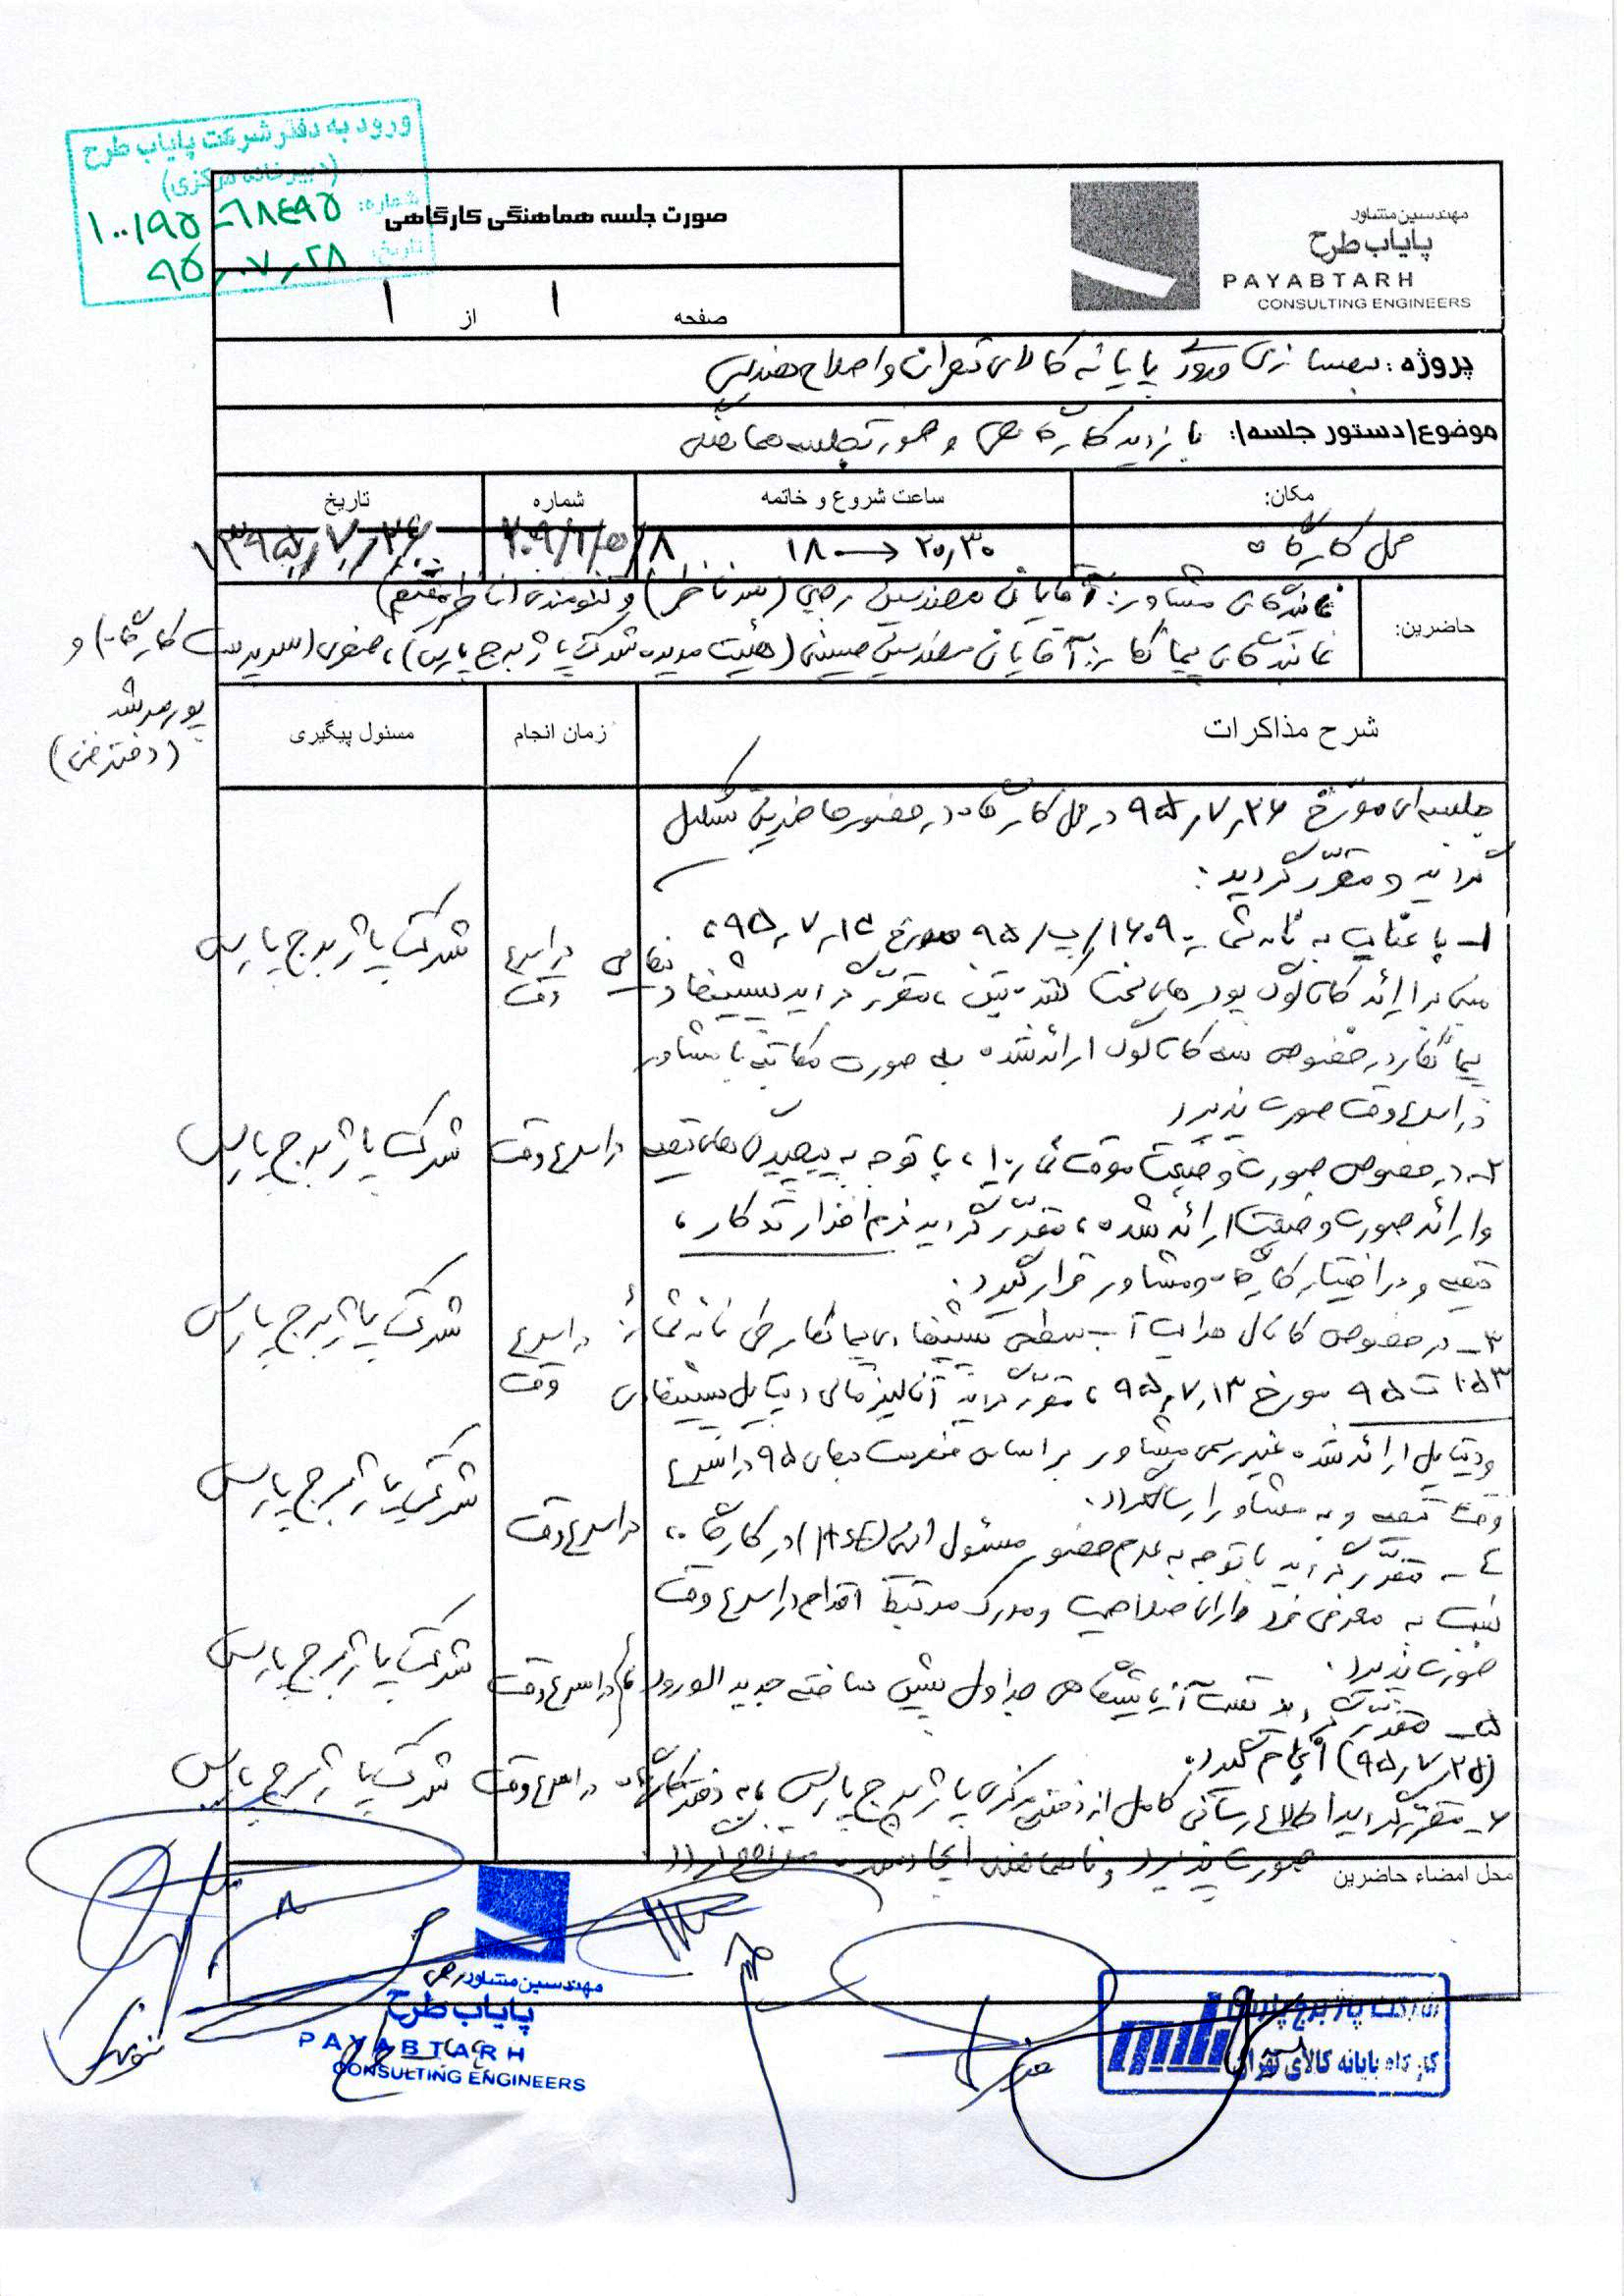 ورود به دفتر شرکت پایاب طرح
(دبیرخانه مرکزی)
شماره: ۱۰۰/۹۵-۶۸۴۹۵
تاریخ: ۹۵,۰۷,۲۸
مهندسین مشاور
پایاب طرح
PAYABTARH
CONSULTING ENGINEERS
صورت جلسه هماهنگی کارگاهی
صفحه ۱ از ۱
پروژه: بهسازی ورودی پایانه کالای تهران و اصلاح هندسی
موضوع/دستور جلسه: بازدید کارگاهی و صورتجلسه هماهنگی
مکان: ساعت شروع و خاتمه شماره تاریخ
محل کارگاه ۱۸ → ۲۰,۳۰ ۱۳۹۵,۷,۲۶
حاضرین: نمایندگان مشاور: آقایان مهندسین رجبی (سرناظر) و تنومندی (ناظر مقیم)
نمایندگان پیمانکار: آقایان مهندسین حسینی (هئیت مدیره شرکت پاژ برج پارس)، صفوی (سرپرست کارگاه) و
پورمرشد
(دفترفنی)
شرح مذاکرات زمان انجام مسئول پیگیری
جلسه‌ای مورخ ۹۵,۷,۲۶ در محل کارگاه در حضور حاضرین تشکیل
گردید و مقرّر گردید:
۱- با عنایت به نامه شماره ۱۶۰۹/پ/۹۵ مورخ ۹۵,۷,۱۴،
شرکت پاژ برج پارس
در اسرع وقت
مبنی بر ارائه کاتالوگ پودرهای سخت کننده بتن، مقرّر گردید پیشنهاد نهایی
پیمانکار در خصوص سه کاتالوگ ارائه شده به صورت مکاتبه با مشاور
در اسرع وقت صورت پذیرد
۲- در خصوص صورت وضعیت موقت شماره ۱، با توجه به پیچیدگی‌های تهیه
در اسرع وقت شرکت پاژ برج پارس
و ارائه صورت وضعیت ارائه شده، مقرّر گردید نرم افزار تدکار،
تهیه و در اختیار کارگاه و مشاور قرار گیرد.
۳- در خصوص کانال هدایت آب سطحی پیشنهادی پیمانکار طی نامه شماره
در اسرع وقت شرکت پاژ برج پارس
۱۰۵۳ ت ۹۵ مورخ ۹۵,۷,۱۳، مقرّر گردید آنالیز مالی دیتایل پیشنهادی
و دیتایل ارائه شده غیر رسمی مشاور بر اساس فهرست بهای ۹۵ در اسرع
وقت تهیه و به مشاور ارسال گردد.
۴- مقرّر گردید با توجه به عدم حضور مسئول ایمنی (HSE) در کارگاه،
در اسرع وقت شرکت پاژ برج پارس
نسبت به معرفی فرد دارای صلاحیت و مدرک مرتبط اقدام در اسرع وقت
صورت پذیرد.
۵- مقرّر گردید تست آزمایشگاهی جداول پیش ساخته جدید الورود
در اسرع وقت شرکت پاژ برج پارس
(۹۵,۷,۲۵) انجام گیرد.
۶- مقرّر گردید اطلاع رسانی کامل از دفتر مرکزی پاژ برج پارس به دفتر کارگاه
در اسرع وقت شرکت پاژ برج پارس
صورت پذیرد و
محل امضاء حاضرین
مهندسین مشاور
پایاب طرح
PAYABTARH
CONSULTING ENGINEERS
شرکت پاژ برج پارس
کارگاه پایانه کالای تهران